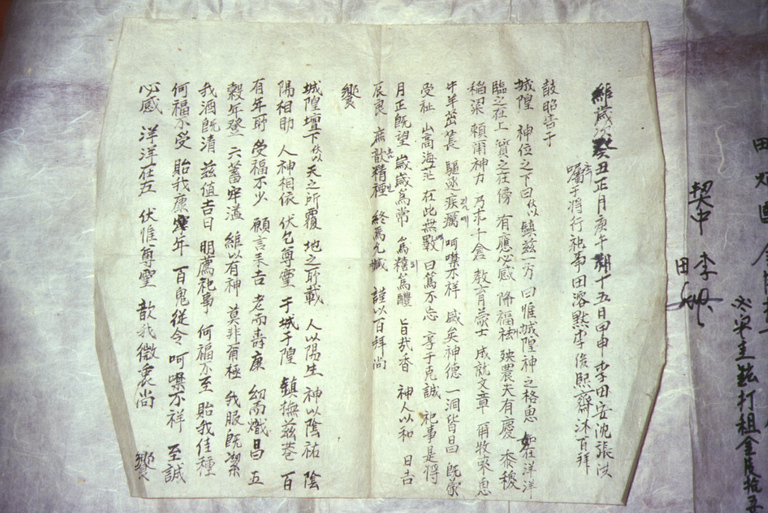 維歲次癸丑正月庚午朔十五日甲申李田安沈張洪
囑于將行祀事田溶點李俊熙齋沐百拜
敢昭告于
城隍 神位之下曰以鎮玆一方 曰惟城隍神之格思 如在洋洋
臨之在上 質之在傍 有應必感 降福祛殃農夫有慶 黍稷
稻粱 賴爾神力 乃求千倉 敎育蒙士 成就文章 爾牧來思
牛羊茁長 驅逐疾癘 呵噤不祥 盛矣神德 一洞皆昌 旣蒙
受祉 山高海茫 在此無斁 曰篤不忘 享于克誠 祀事是將
月正旣望 歲歲爲常 爲禧爲醴 旨哉香 神人以和 日吉
辰良 庶歆精禋 終焉允臧 謹以百拜尚
饗
城隍壇下以天之所覆 地之所載 人以陽生 神以陰祐 陰
陽相助 人神相依 伏乞尊靈 于城于隍 鎮撫玆巷 百
有年所 受福不少 願言來吉 老而壽康 幼而熾昌 五
穀年登 六畜牢溢 維以有神 莫非爾極 我服旣潔
我酒旣清 玆值吉日 明薦祀事 何福不至 貽我佳種
何福不受 貽我康年 百鬼從令 呵噤不祥 至誠
必感 洋洋在五 伏惟尊靈 歆我微衷尚
饗
契中 李
田